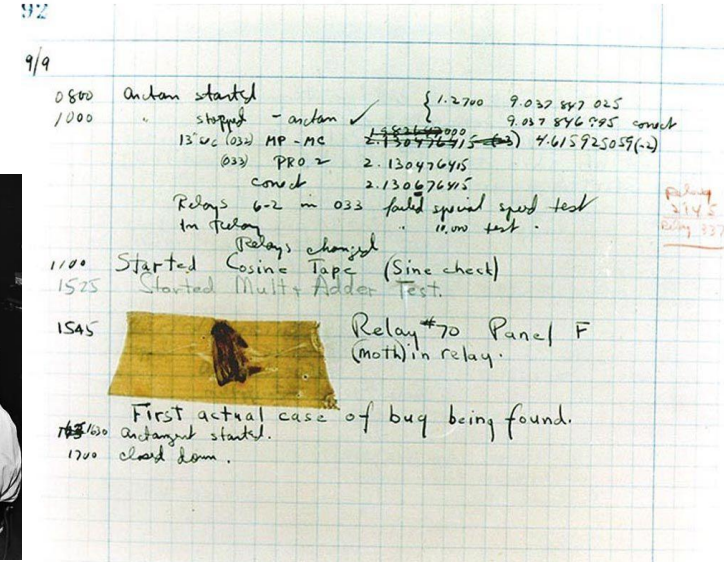 92
9/9
0800 arctan started { 1.2700 9.037 847 025
1000 " stopped - arctan ✓ 9.037 846 995 correct
13"uc (032) MP - MC 2.130476415 4.615925059(-2)
(033) PRO 2 2.130476415
correct 2.130676415
Relays 6-2 in 033 failed special speed test
In Relay " 10,000 test .
Relays changed
Relay
Relay 337
1100 Started Cosine Tape (Sine check)
1525 Started Mult+ Adder Test.
1545 Relay #70 Panel F
(moth) in relay.
First actual case of bug being found.
1630 arctangent started.
1700 closed down .